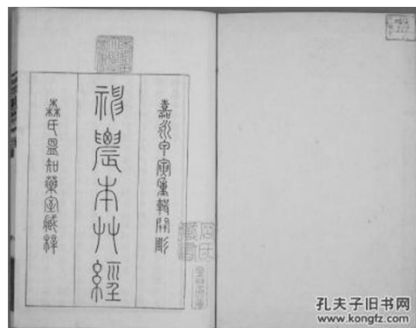 嘉永甲寅重輯開彫
神農本艸經
森氏溫知藥室藏梓
孔夫子旧书网
www.kongfz.com